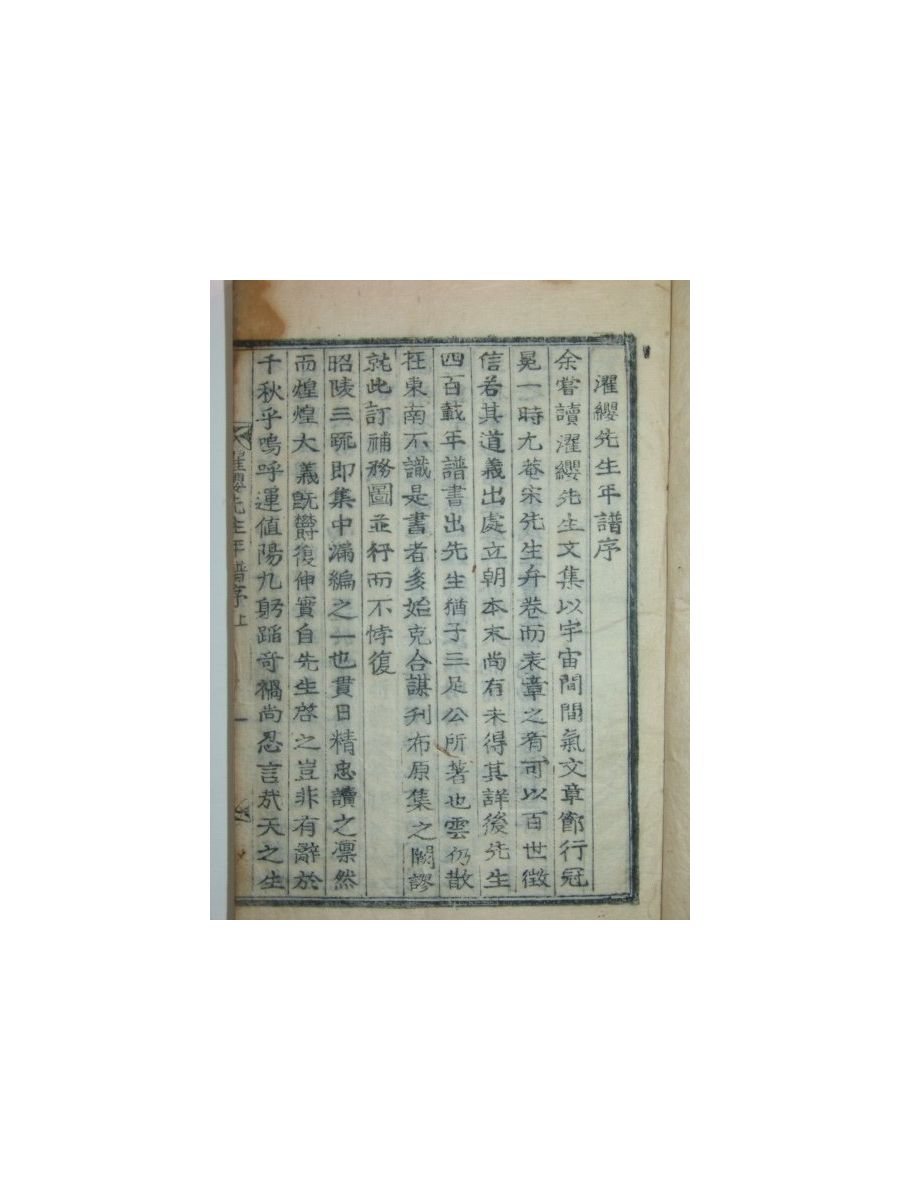 濯纓先生年譜序
余嘗讀濯纓先生文集以宇宙間間氣文章節行冠
冕一時尤菴宋先生弁卷而表章之有可以百世徵
信若其道義出處立朝本末尚有未得其詳後先生
四百載年譜書出先生猶子三足公所著也雲仍散
在東南不識是書者多始克合謀刋布原集之闕謬
就此訂補務圖並行而不悖復
昭陵三疏即集中漏編之一也貫日精忠讀之凛然
而煌煌大義旣欝復伸實自先生啓之豈非有辭於
千秋乎嗚呼運值陽九躬蹈奇禍尚忍言㢤天之生
濯纓先生年譜序上 一